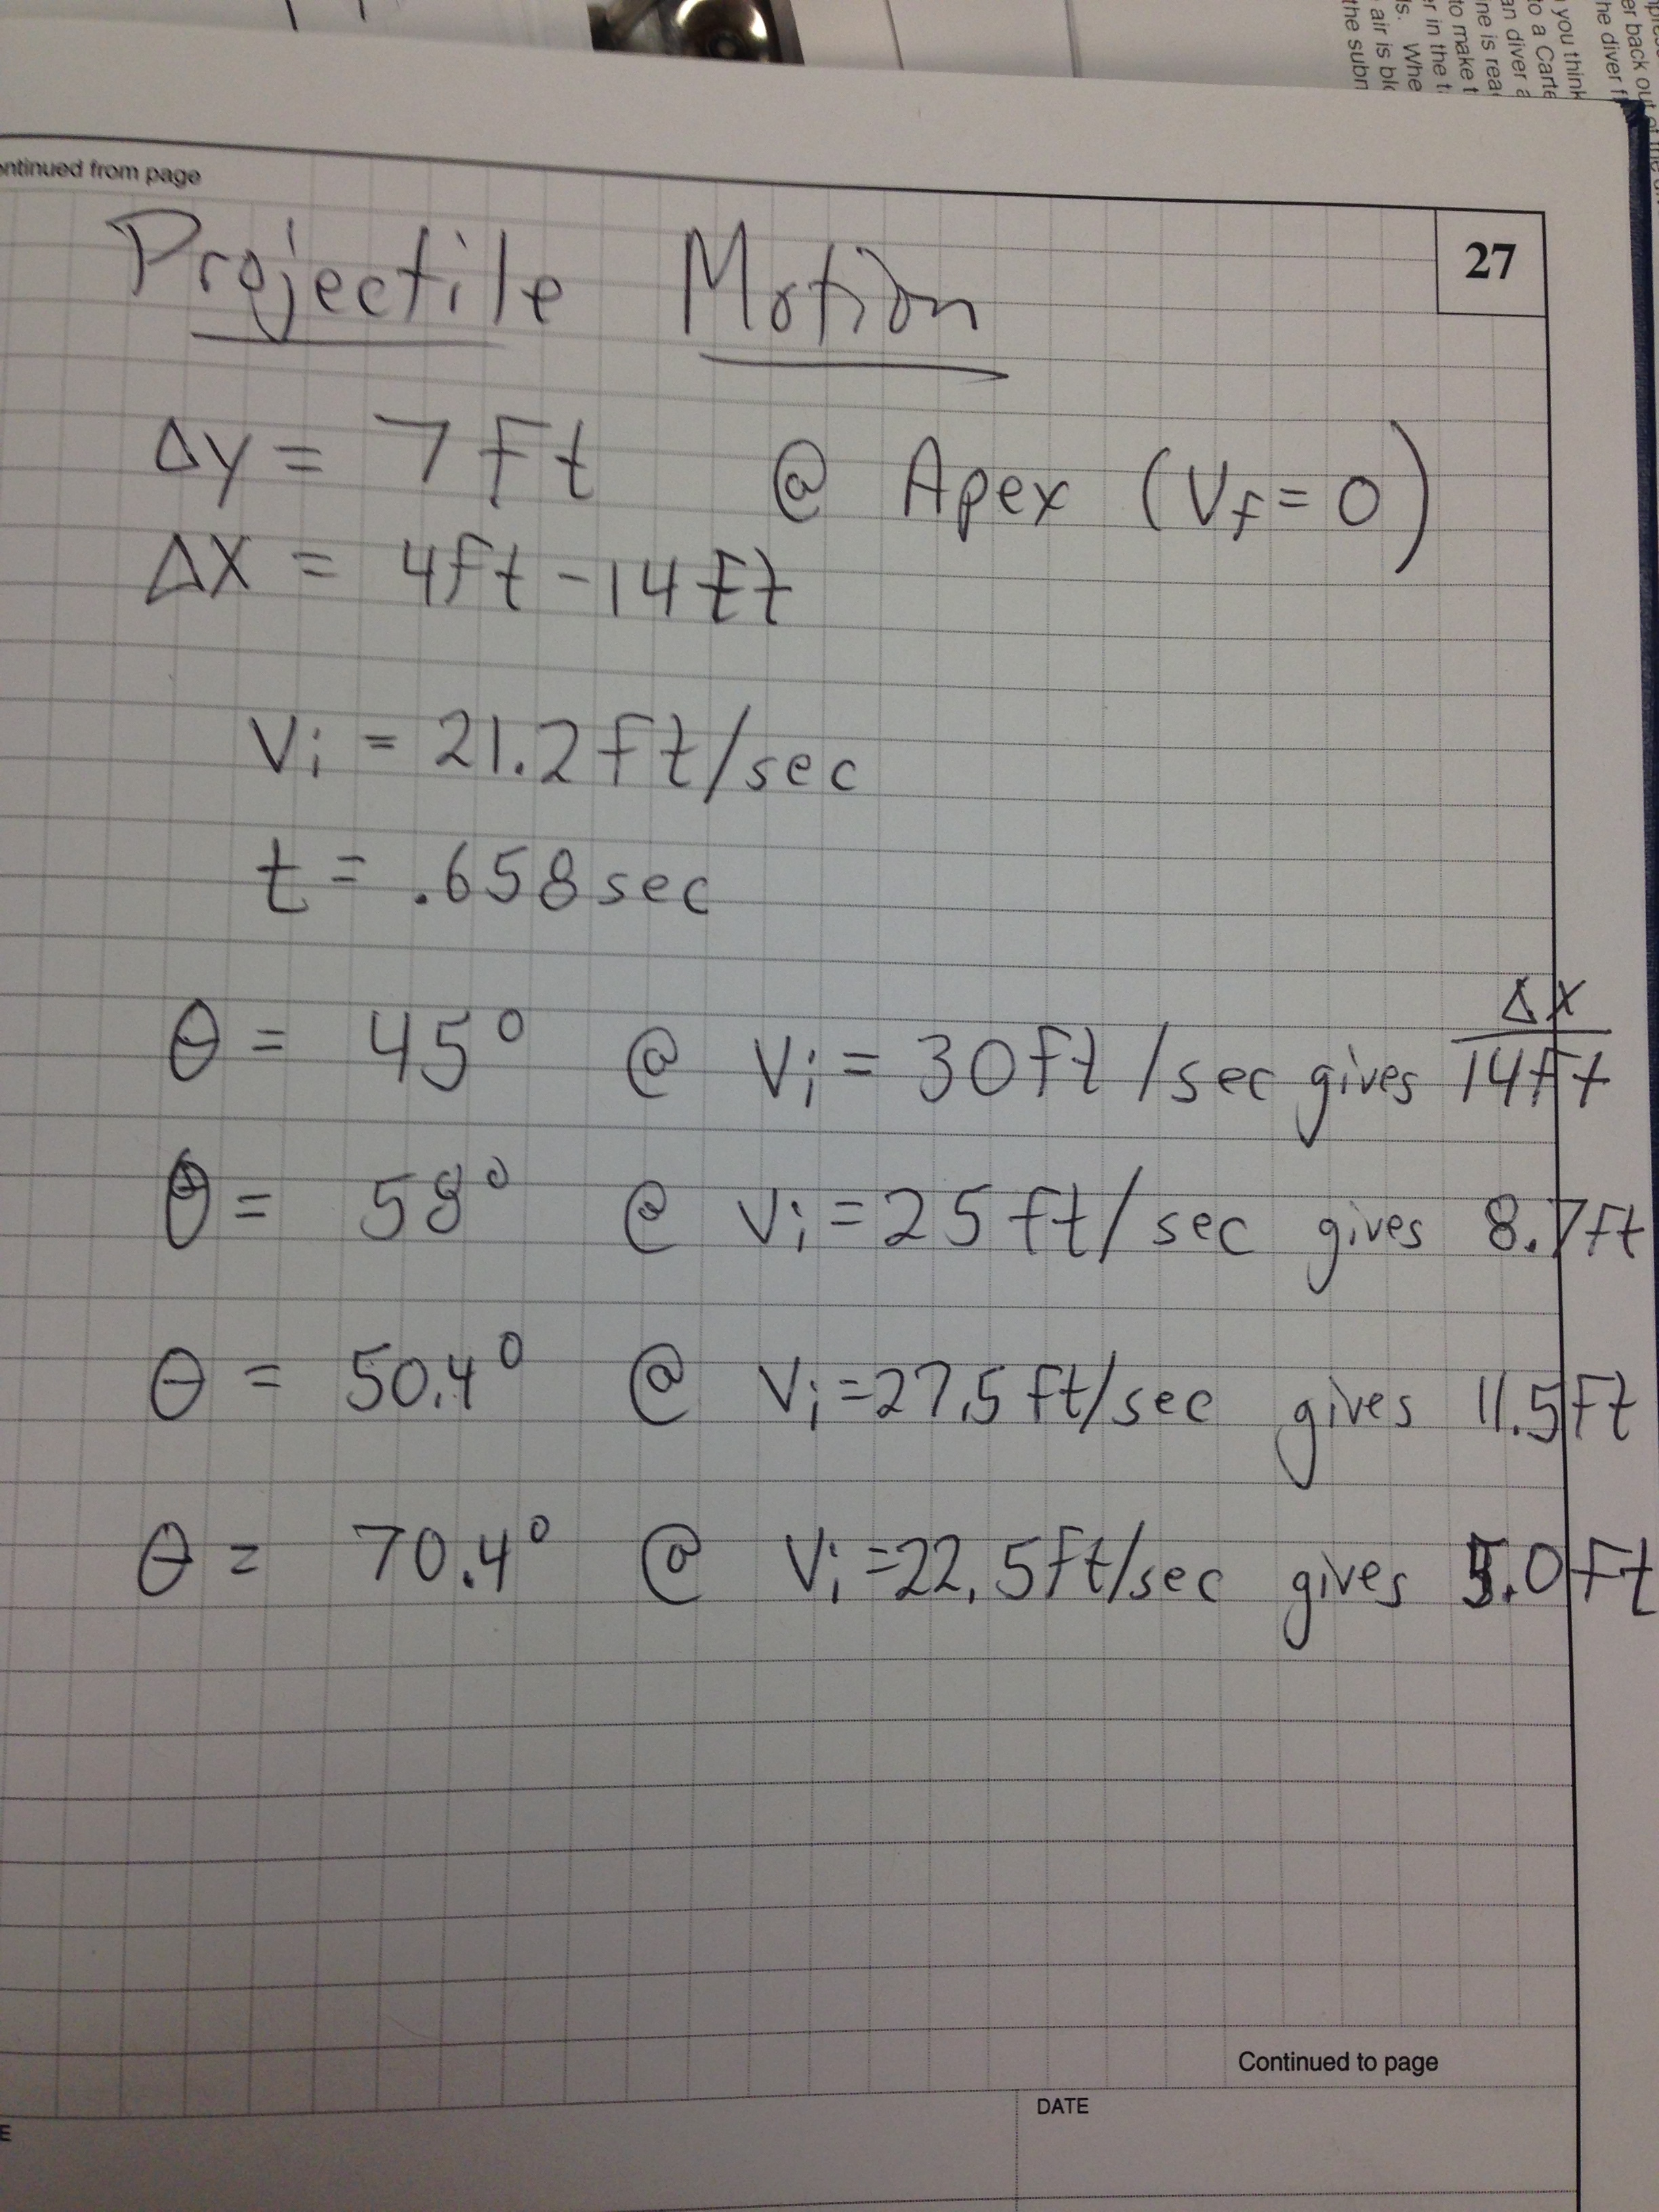 er back out of the
he diver f
you think
to a Carte
an diver a
ine is rea
to make t
er in the t
ls. Whe
air is blo
the subn
ontinued from page
27
Projectile Motion
Δy = 7 ft @ Apex (Vf = 0)
ΔX = 4ft - 14ft
Vi = 21.2 ft/sec
t = .658 sec
ΔX
θ = 45° @ Vi = 30ft/sec gives 14ft
θ = 58° @ Vi = 25 ft/sec gives 8.7ft
θ = 50.4° @ Vi = 27.5 ft/sec gives 11.5ft
θ = 70.4° @ Vi = 22.5ft/sec gives 5.0ft
Continued to page
DATE
E